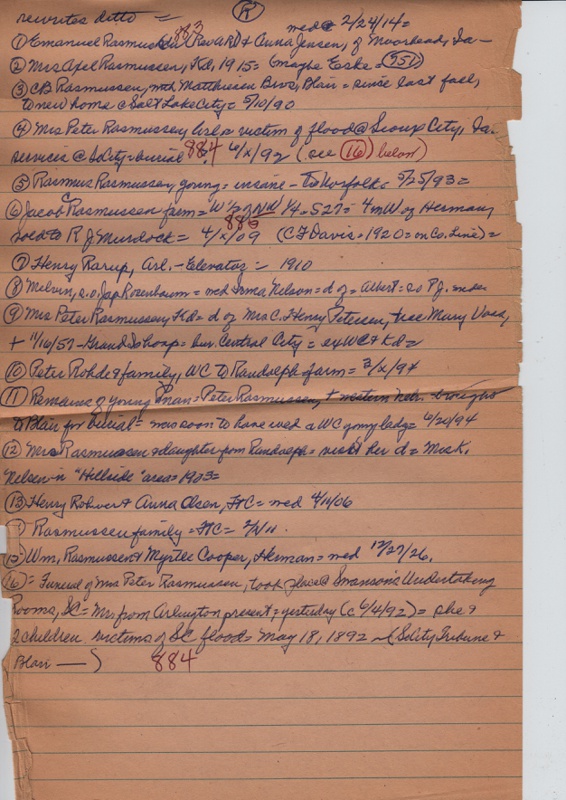 rewrites ditto = (R) med @ 2/24/14 =
① Emanuel Rasmussen 883 (Rev ARD + Anna Jensen, of Moorhead, Ia —
② Mrs Axel Rasmussen, Kd, 1915 = (maybe Eske = 951)
③ CB Rasmussen, with Matthiesen Bros, Blair = since last fall,
to new home @ Salt Lake City = 5/10/90
④ Mrs Peter Rasmussen = victim of flood @ Sioux City, Ia.
services @ SCity = burial 884 ?. 6/x/92 (see (16) below)
⑤ Rasmus Rasmussen young = insane — to Norfolk = 5/25/93 =
⑥ Jacob C Rasmussen farm = W ½ of NW ¼ - S27 = 4m W of Herman,
sold to R J Murdock = 886 4/x/09 (C F Davis = 1920 = on Co. Line) =
⑦ Henry Rarup, Arl. — Elevator = 1910
⑧ Melvin, s.o. Jap Rosenbaum = med Irma Nelson = d of = Albert = s.o P.J.
⑨ Mrs Peter Rasmussen, Kd = d of Mrs C. Henry Petersen, nee Mary
+ 11/16/57 — Grand Is hosp = bur. Central City = ex WC & Kd =
⑩ Peter Rohde & family, WC to Randolph farm = 3/x/94
⑪ Remains of young man = Peter Rasmussen, + western Neb. brought
to Blair for burial = was soon to have wed a WC young lady = 6/20/94
⑫ Mrs Rasmussen & daughter from Randolph = visit her d = Mrs K.
Nelsen in "Hillside" area = 1903 =
⑬ Henry Rohwer & Anna Olsen, FtC = med 4/11/06
Rasmussen family = FtC =
15 Wm, Rasmussen & Myrtle Cooper, Herman = med 12/27/26.
⑯ = Funeral of Mrs Peter Rasmussen, took place @ Swanson's Undertaking
Rooms, SC = Mrs from Arlington present = yesterday (c 6/4/92) = she &
2 children victims of SC flood = May 18, 1892 — (SCity Tribune &
Blair —) 884